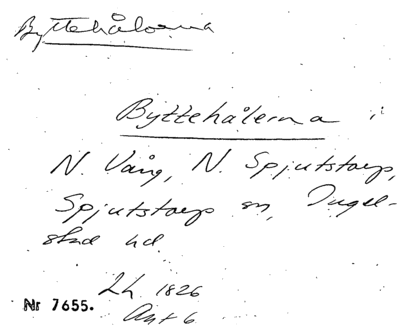 Byttehålorna
Byttehålerna i
N. Vång, N. Spjutstorp,
Spjutstorp sn, Ingel-
stad hd
Lh. 1826
Akt 6
Nr 7655.